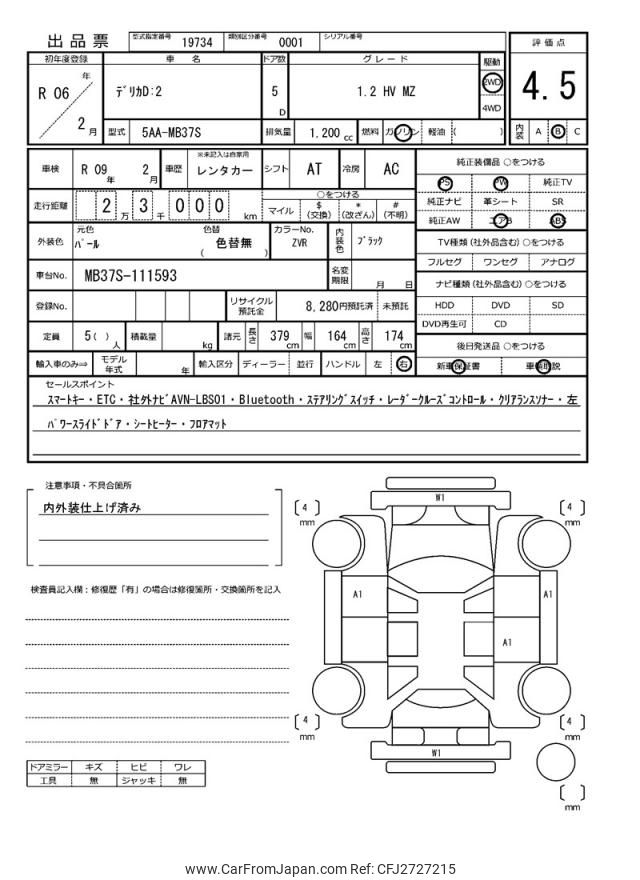 出品票 型式指定番号 19734 類別区分番号 0001 シリアル番号
評価点
4.5
内装 A B C
初年度登録 車名 ドア数 グレード 駆動
R 06 年 2 月 デリカD:2 5 D 1.2 HV MZ 2WD 4WD
型式 5AA-MB37S 排気量 1.200 cc 燃料 ガソリン 軽油 ( )
車検 R 09 年 2 月 車歴 ※未記入は自家用 レンタカー シフト AT 冷房 AC
走行距離 2 万 3 千 0 0 0 km ○をつける マイル $ (交換) * (改ざん) # (不明)
外装色 元色 パール 色替 色替無 ( ) カラーNo. ZVR 内装色 ブラック
車台No. MB37S-111593 名変期限 月 日
登録No. リサイクル預託金 8,280円預託済 未預託
定員 5( ) 人 積載量 kg 諸元 長さ 379 cm 幅 164 cm 高さ 174 cm
輸入車のみ⇒ モデル年式 年 輸入区分 ディーラー 並行 ハンドル 左 右
純正装備品 ○をつける
PS PW 純正TV
純正ナビ 革シート SR
純正AW エアB ABS
TV種類(社外品含む)○をつける
フルセグ ワンセグ アナログ
ナビ種類(社外品含む)○をつける
HDD DVD SD
DVD再生可 CD
後日発送品 ○をつける
新車保証書 車輌取説
セールスポイント
スマートキー・ETC・社外ナビAVN-LBS01・Bluetooth・ステアリングスイッチ・レーダークルーズコントロール・クリアランスソナー・左
パワースライドドア・シートヒーター・フロアマット
注意事項・不具合箇所
内外装仕上げ済み
検査員記入欄:修復歴「有」の場合は修復箇所・交換箇所を記入
ドアミラー キズ ヒビ ワレ
工具 無 ジャッキ 無
W1
[4] mm [4] mm
A1 A1
A1
[4] mm [4] mm
W1
[ ] mm
www.CarFromJapan.com Ref: CFJ2727215